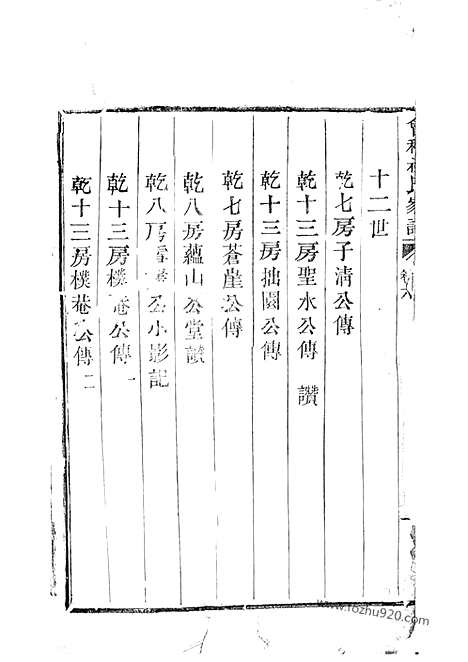 十二世
乾七房子清公傳
乾十三房聖水公傳 讚
乾十三房拙園公傳
乾七房蒼崖公傳
乾八房蘊山公堂讚
乾八房 公小影記
乾十三房樸巷公傳一
乾十三房樸巷公傳二
會稽 氏家譜 卷六
www.fozhu920.com